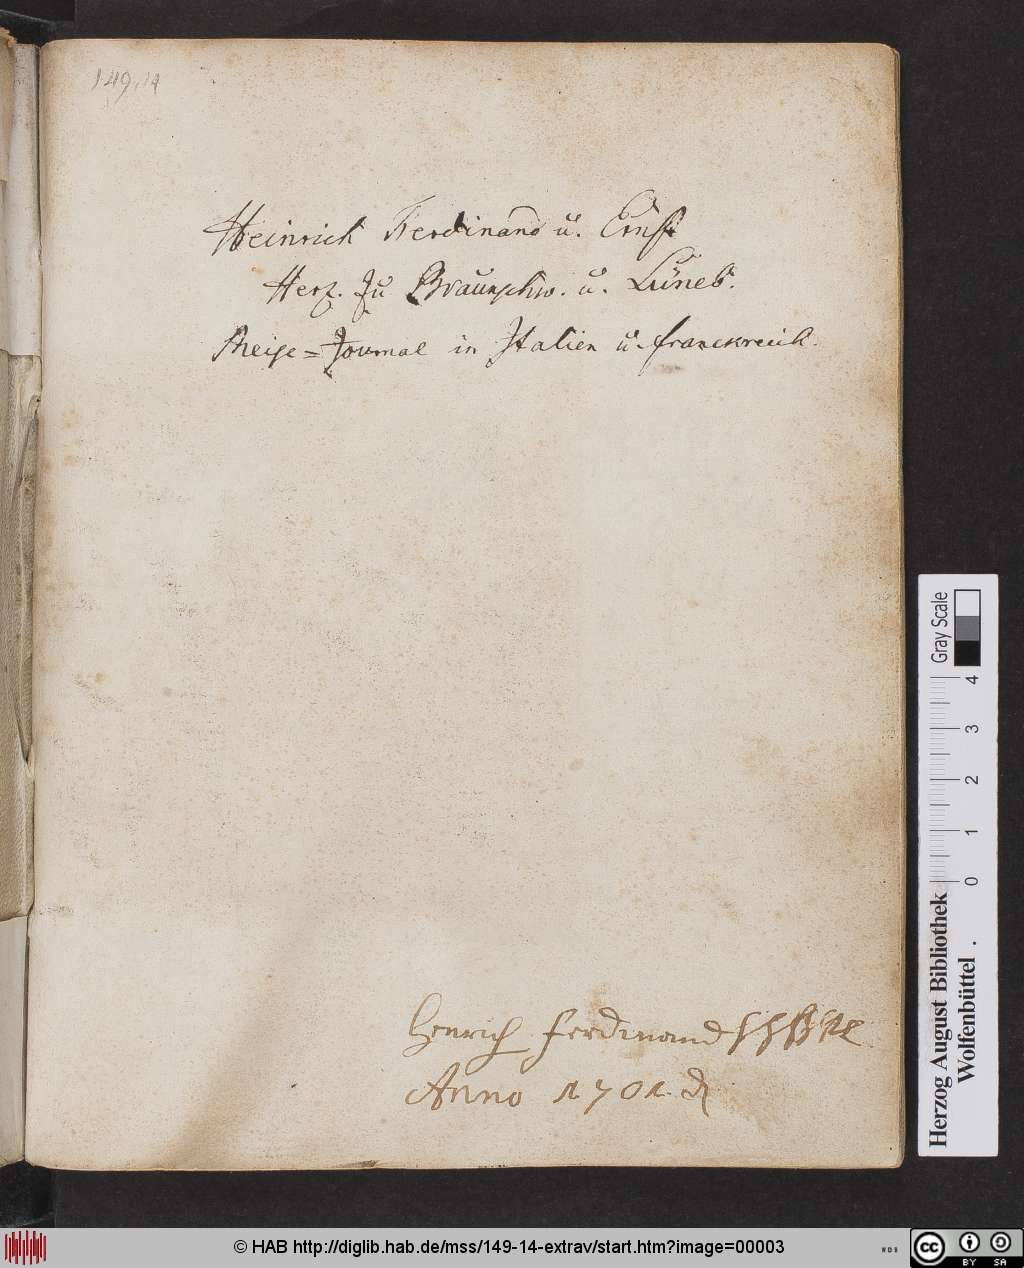 149,14
Heinrich Ferdinand u. Ernst
Herz. zu Braunschw. u. Lüneb.
Reise=Journal in Italien u. franckreich.
Henrich ferdinand
Anno 1701.
Gray Scale
4
3
2
1
0
Herzog August Bibliothek
Wolfenbüttel
© HAB http://diglib.hab.de/mss/149-14-extrav/start.htm?image=00003
cc BY SA